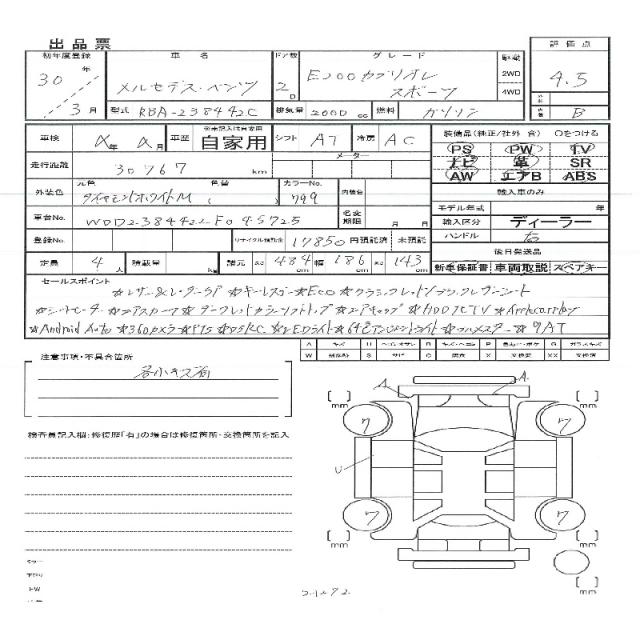 出品票
初年度登録 車名 ドア数 グレード 駆動 評価点
30年 3月 メルセデス・ベンツ 2D E200カブリオレ スポーツ 2WD 4WD 4.5
型式 RBA-238442C 排気量 2000 cc 燃料 ガソリン B
車検 年 月 車歴 自家用 シフト AT 冷房 AC 装備品(純正/社外 含) ○をつける
走行距離 30767 km メーター PS PW TV
ナビ 革 SR
AW エアB ABS
外装色 元色 ダイヤモンドホワイトM 色替 ( ) カラーNo. 799 内装色
輸入車のみ
モデル年式 年
車台No. WDD2384422F094572.5 名変期限 月 日 輸入区分 ディーラー
ハンドル 右
登録No. リサイクル預託金 17850 円預託済 未預託
後日発送品
定員 4人 積載量 kg 諸元 長さ 484 cm 幅 186 cm 高さ 143 cm 新車保証書 車両取説 スペアキー
セールスポイント
★レザー&レーダーSP ★キーレスゴー ★ECO ★クラシックレッド/ブラックレザーシート
★シートヒーター ★エアスカーフ ★ダークレッドカラーソフトトップ ★エアキャップ ★HDDナビTV ★Applecarplay
★Android Auto ★360°カメラ ★PTS ★DSRC ★LEDライト ★64色アンビエントライト ★フルメスター ★9AT
注意事項・不具合箇所
各小キズ有
検査員記入欄：修復歴「有」の場合は修復箇所・交換箇所を記入
A A
[ ] mm 7 7 [ ] mm
U
7 7
[ ] mm [ ] mm
[ ] mm